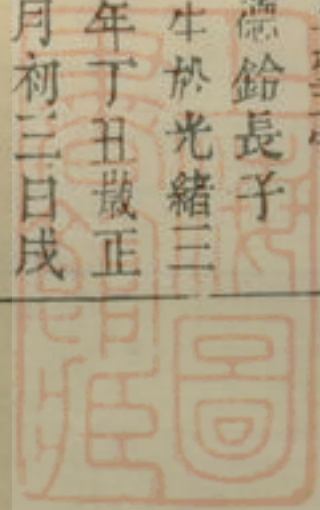 德鈴長子
生於光緒三
年丁丑歲正
月初三日戌
圖